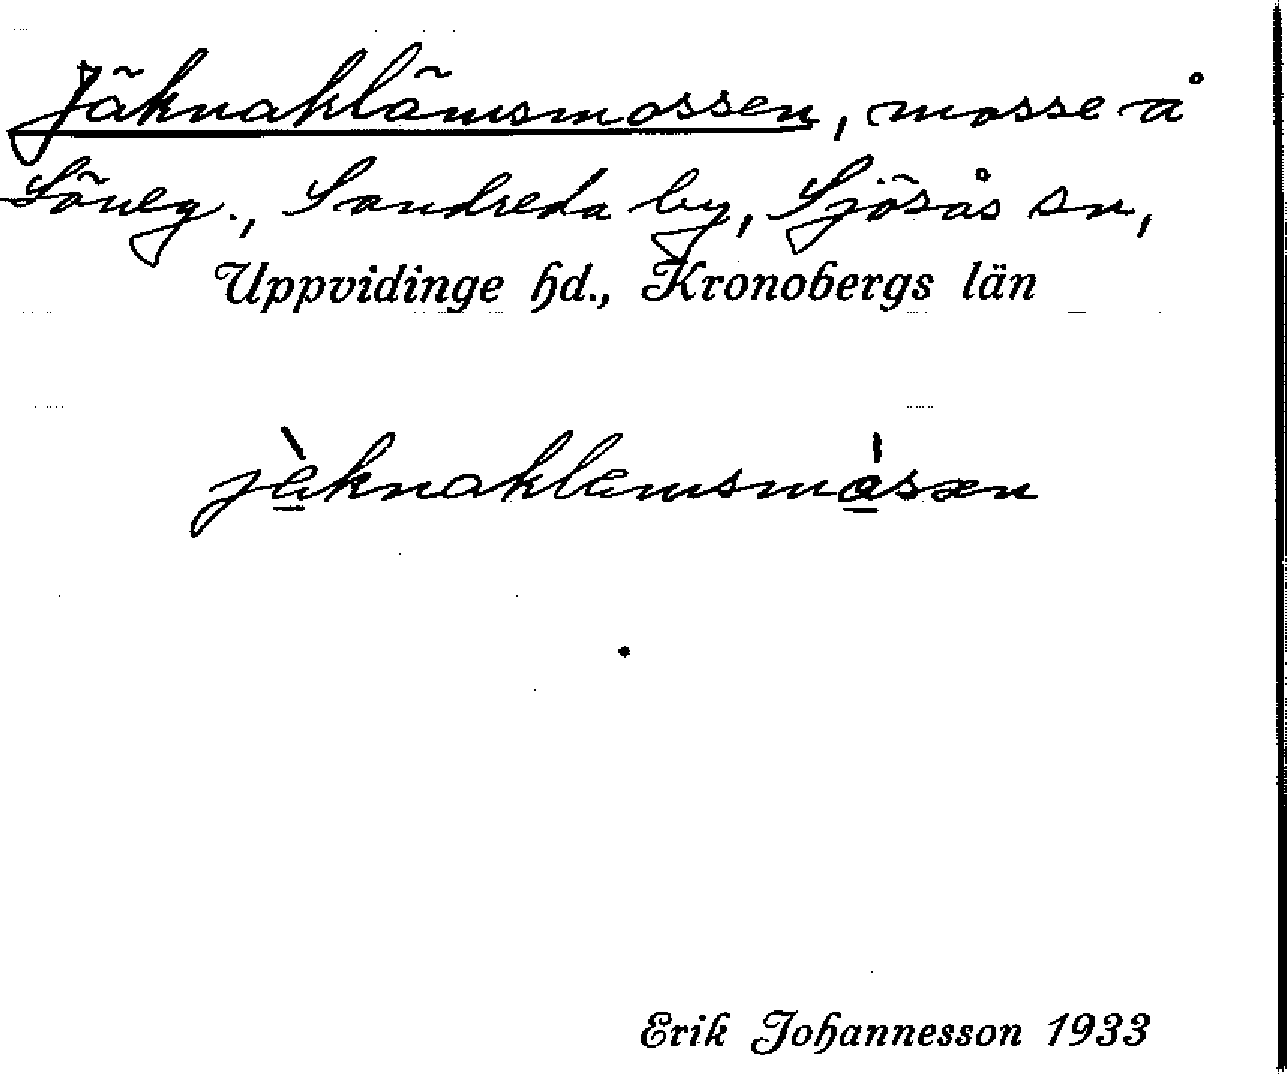 Jäknaklämsmossen, mosse å
Söneg., Sandreda by, Sjösås sn,
Uppvidinge hd., Kronobergs län
jàknaklamsmåsen
Erik Johannesson 1933